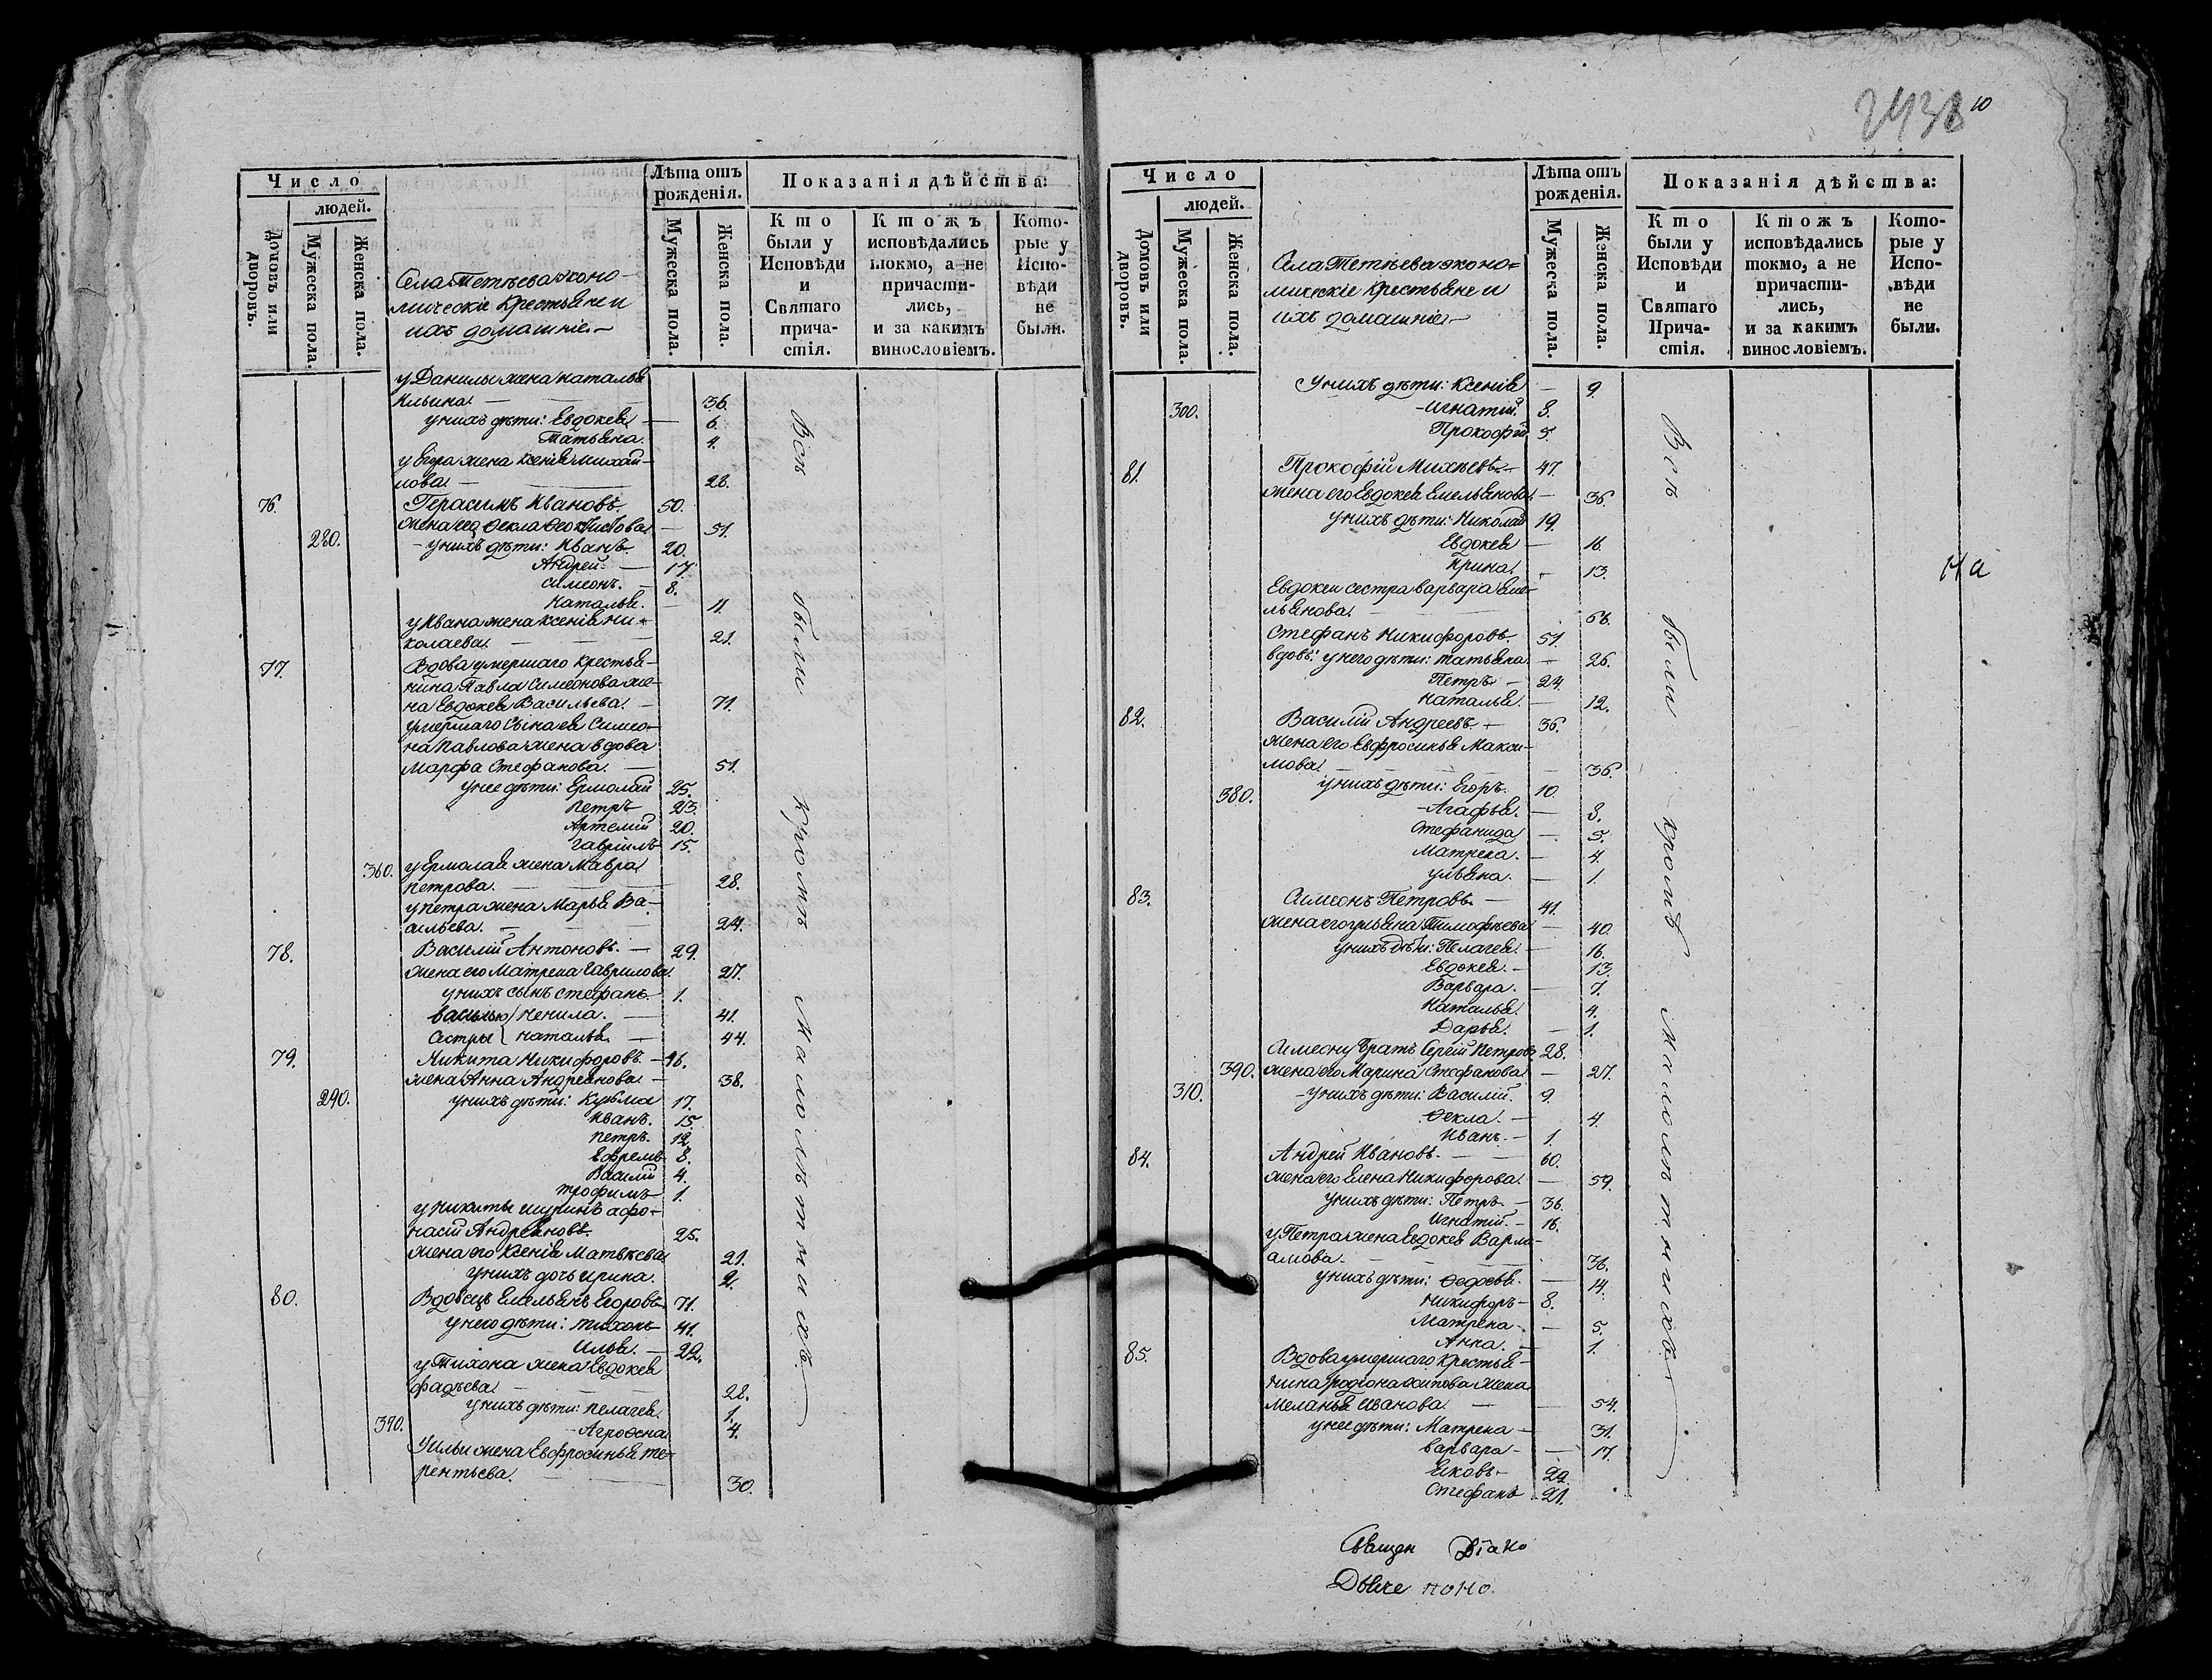 2438 10
Число
людей.
Домовъ или дворовъ.
Мужеска пола.
Женска пола.
Села Тетѣева эконо-
мическіе Крестьяне и
ихъ домашніе
Лѣта отъ
рожденія.
Мужеска пола.
Женска пола.
Показанія дѣйства:
Кто
были у
Исповѣди
и
Святаго
прича-
стія.
Ктожъ
исповѣдались
токмо, а не
причасти-
лись,
и за какимъ
винословіемъ.
Кото-
рые у
Испо-
вѣди
не
были.
у Данилы жена Наталья
Ильина. 36.
у нихъ дѣти: Евдокея 6.
Татьяна. 4.
у Егора жена Ксенія Михай-
лова 28.
76. Герасимъ Ивановъ. 50.
жена его Ѳекла Ѳеоктистова 51.
280. у нихъ дѣти: Иванъ. 20.
Андрей 17.
Симеонъ. 8.
Наталья. 11.
у Ивана жена Ксенія Ни-
колаева. 21.
77. Вдова умершаго крестья-
нина Павла Симеонова же-
на Евдокея Васильева. 71.
умершаго сына ея Симео-
на Павлова жена вдова
Марфа Стефанова. 51.
у нее дѣти: Ермолай 25.
Петръ 23.
Артемій 20.
Гавріилъ 15.
360. у Ермолая жена Мавра
Петрова. 28.
у Петра жена Марья Ва-
сильева. 24.
78. Василій Антоновъ. 29.
жена его Матрена Гаврилова. 27.
у нихъ сынъ Стефанъ. 1.
Василью Ненила. 41.
сестры Наталья. 44.
79. Никита Никифоровъ. 46.
жена Анна Андреянова. 38.
290. у нихъ дѣти: Кузьма 17.
Иванъ. 15.
Петръ. 12.
Ефремъ 8.
Василій 4.
Трофимъ 1.
у Никиты шуринъ Афо-
насій Андреяновъ. 25.
жена его Ксенія Матвѣева 21.
у нихъ дочь Ирина. 2.
80. Вдовецъ Емельянъ Егоровъ 71.
у него дѣти: Тихонъ 41.
Илья. 22.
у Тихона жена Евдокея
Фадѣева. 28.
у нихъ дѣти: Пелагея. 1.
370. Агрофена. 4.
у Ильи жена Евфросинья Те-
рентьева. 30.
Всѣ были кромѣ малолѣтнихъ
Число
людей.
Домовъ или дворовъ.
Мужеска пола.
Женска пола.
Села Тетѣева эконо-
мическіе Крестьяне и
ихъ домашніе
Лѣта отъ
рожденія.
Мужеска пола.
Женска пола.
Показанія дѣйства:
Кто
были у
Исповѣди
и
Святаго
Прича-
стія.
Ктожъ
исповѣдались
токмо, а не
причасти-
лись,
и за какимъ
винословіемъ.
Кото-
рые у
Испо-
вѣди
не
были.
у нихъ дѣти: Ксенія 9.
300. Игнатій. 8.
Прокофій 5.
81. Прокофій Михѣевъ 47.
жена его Евдокея Емельянова 36.
у нихъ дѣти: Николай 19.
Евдокея 16.
Ирина. 13.
Евдокеи сестра Варвара Еме-
льянова.
Стефанъ Никифоровъ. 51.
вдовъ: у него дѣти: Татьяна 26.
Петръ 24.
Наталья. 12.
82. Василій Андреевъ. 36.
жена его Евфросинья Макси-
мова. 36.
380. у нихъ дѣти: Егоръ. 10.
Агафья. 8.
Стефанида 5.
Матрена. 4.
Ульяна. 1.
83. Симеонъ Петровъ. 41.
жена его Ульяна Тимофѣева 40.
у нихъ дѣти: Пелагея. 16.
Евдокея. 13.
Варвара. 7.
Наталья. 4.
Дарья. 1.
Симеону братъ Сергій Петровъ 28.
390. жена его Марина Стефанова 27.
310. у нихъ дѣти: Василій. 9.
Ѳекла. 4.
Иванъ. 1.
84. Андрей Ивановъ. 60.
жена его Елена Никифорова. 59.
у нихъ дѣти: Петръ 36.
Игнатій. 16.
у Петра жена Евдокея Варла-
амова. 36.
у нихъ дѣти: Ѳедосья. 14.
Никифоръ 8.
Матрена 5.
Анна. 1.
85. Вдова умершаго крестья-
нина Родіона Осипова жена
Меланья Иванова. 54.
у нее дѣти: Матрена 31.
Варвара 17.
Яковъ 22.
Стефанъ 21.
Всѣ были кромѣ малолѣтнихъ
На
Священ Діако
Дьяче поно.